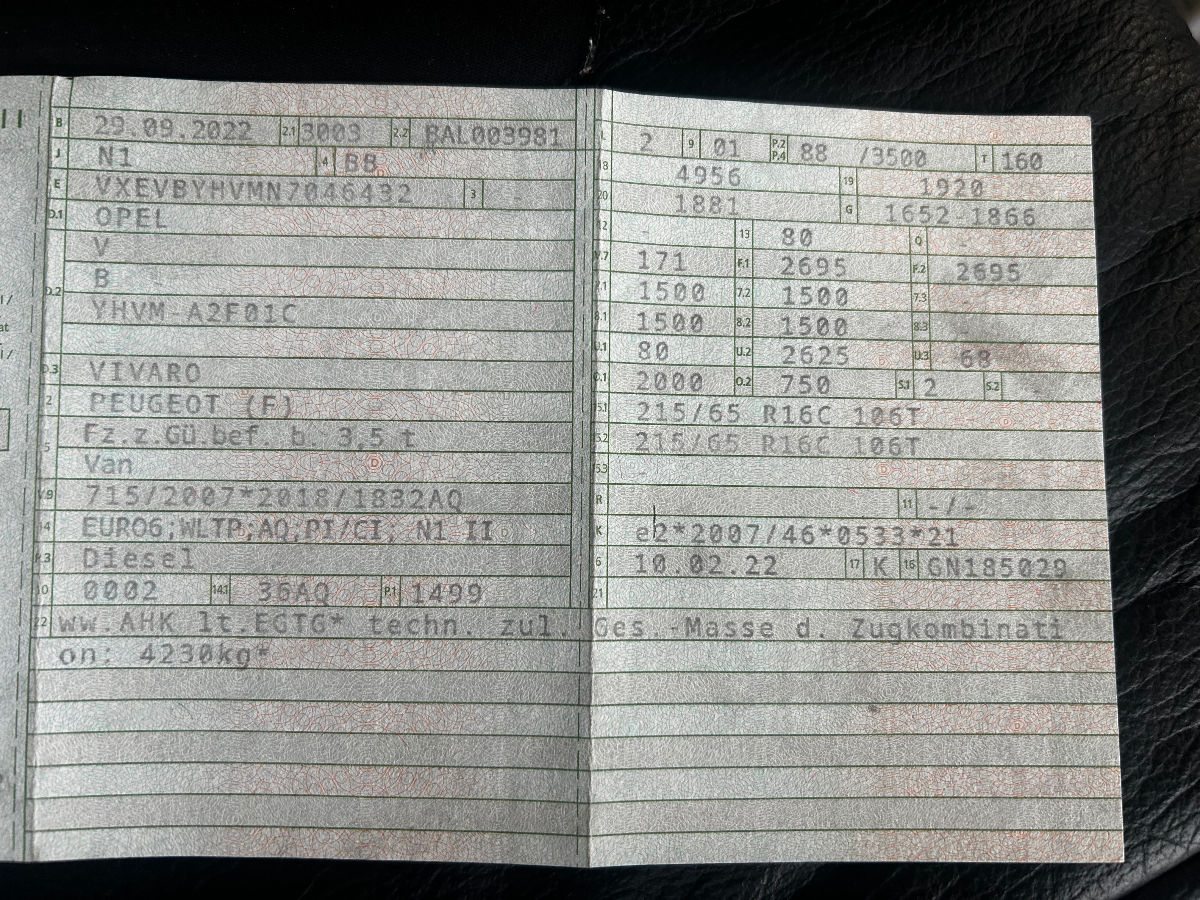 B 29.09.2022 2.1 3003 2.2 BAL003981
J N1 4 BB
E VXEVBYHVMN7046432 3 -
D.1 OPEL
V
D.2 B
YHVM-A2F01C
D.3 VIVARO
2 PEUGEOT (F)
5 Fz.z.Gü.bef. b. 3,5 t
Van
V.9 715/2007*2018/1832AQ
14 EURO6;WLTP;AQ;PI/CI; N1 II
P.3 Diesel
10 0002 14.1 36AQ P.1 1499
L 2 9 01 P.2 P.4 88 /3500 T 160
18 4956 19 1920
20 1881 G 1652-1866
12 - 13 80 Q -
V.7 171 F.1 2695 F.2 2695
7.1 1500 7.2 1500 7.3
8.1 1500 8.2 1500 8.3
U.1 80 U.2 2625 U.3 68
O.1 2000 O.2 750 S.1 2 S.2 -
15.1 215/65 R16C 106T
15.2 215/65 R16C 106T
15.3 -
R 11 -/-
K e2*2007/46*0533*21
6 10.02.22 17 K 16 GN185029
21
22 ww.AHK lt.EGTG* techn. zul. Ges.-Masse d. Zugkombinati
on: 4230kg*